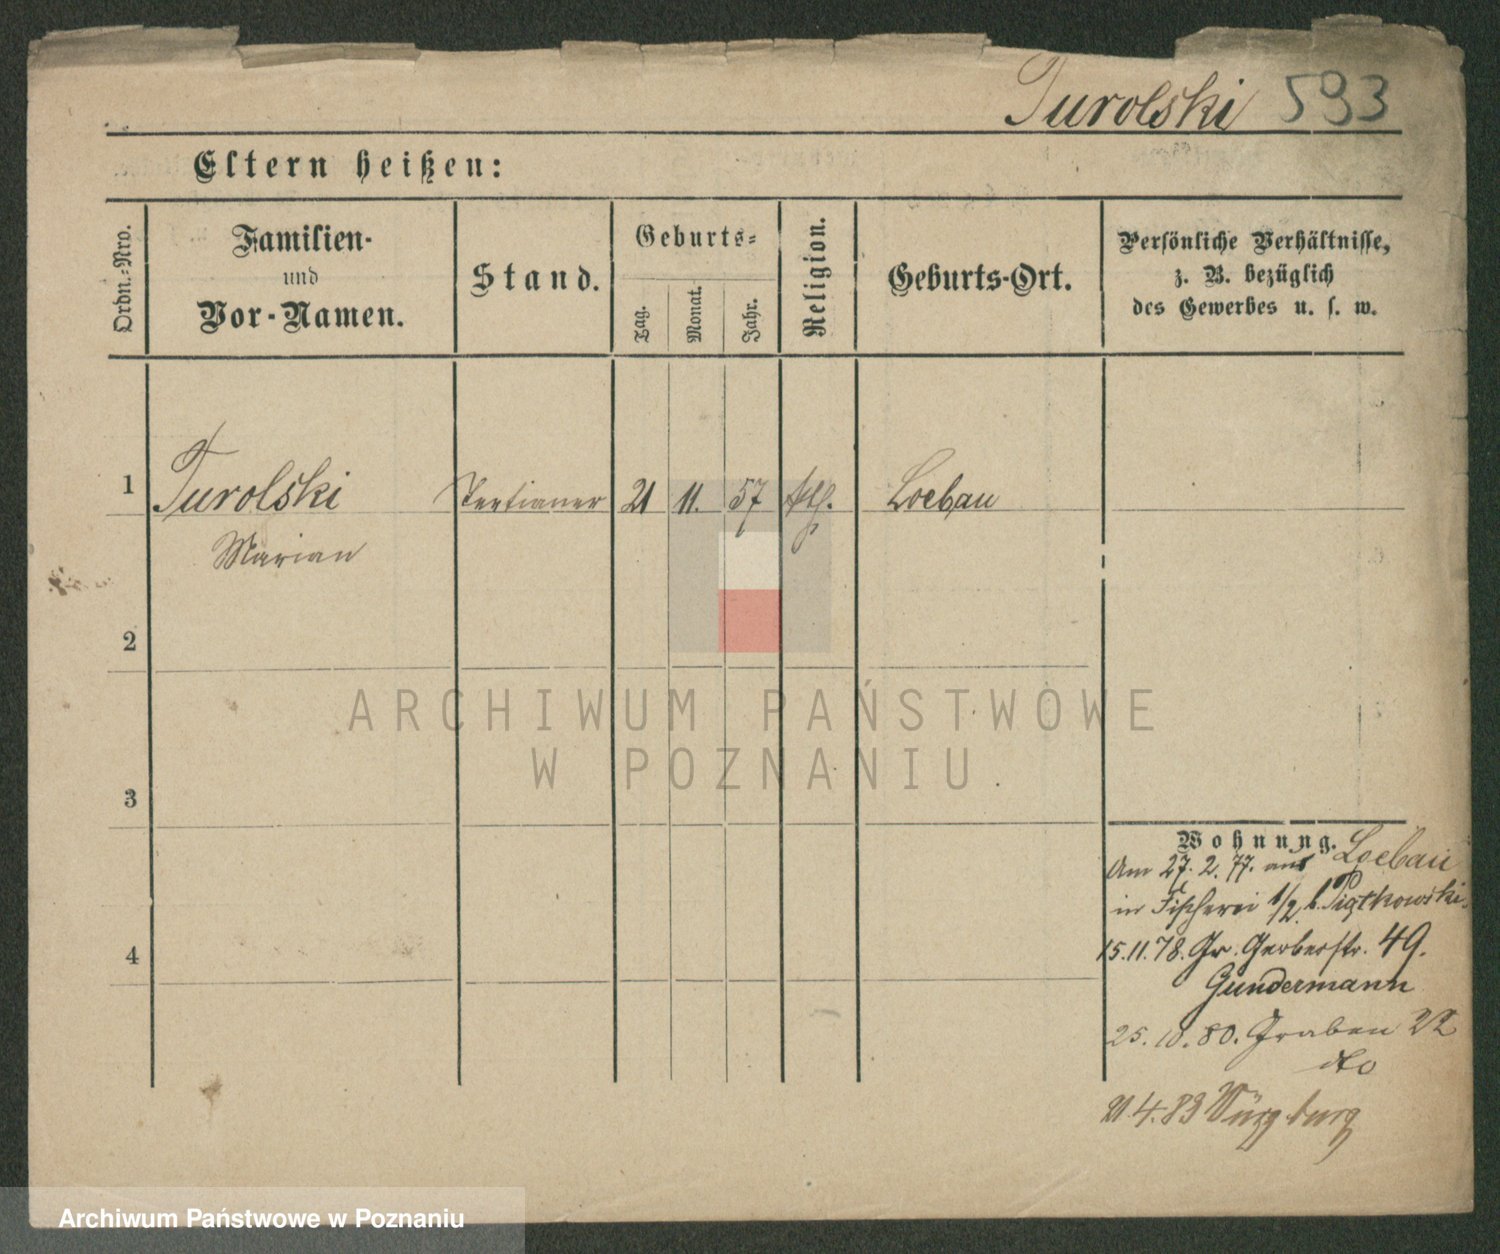 Turolski 593
Eltern heißen:
Ordn.-Nro.
Familien-
und
Vor-Namen.
Stand.
Geburts-
Tag.
Monat.
Jahr.
Religion.
Geburts-Ort.
Persönliche Verhältnisse,
z. B. bezüglich
des Gewerbes u. s. w.
1 Turolski Tertianer 21 11. 57 kth. Loebau
Marian
2
3
4
Wohnung.
Am 27. 2. 77. aus Loebau
in Fischerei 1/2 b. Piątkowski
15.11.78. Gr. Gerberstr. 49.
Gundermann
25. 10. 80. Graben 22
dto
21. 4. 83 Würzburg
ARCHIWUM PAŃSTWOWE
W POZNANIU
Archiwum Państwowe w Poznaniu